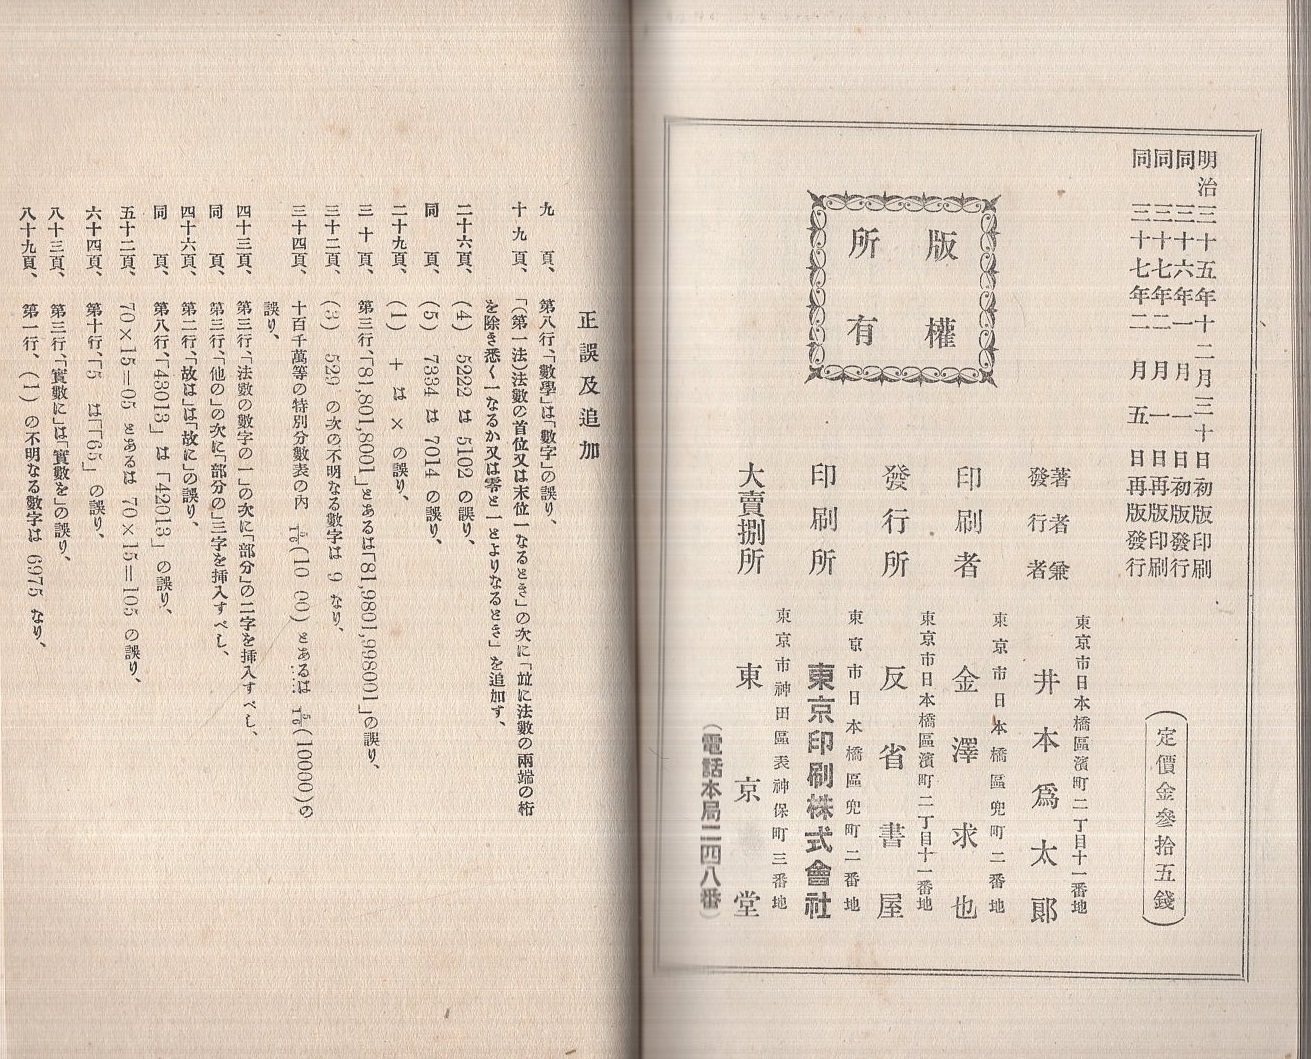 明治三十五年十二月三十日初版印刷
同三十六年一月一日初版發行
同三十七年二月一日再版印刷
同三十七年二月五日再版發行
定價金參拾五錢
版權
所有
著者兼
發行者
東京市日本橋區濱町二丁目十一番地
井本爲太郎
印刷者
東京市日本橋區兜町二番地
金澤求也
發行所
東京市日本橋區濱町二丁目十一番地
反省書屋
印刷所
東京市日本橋區兜町二番地
東京印刷株式會社
大賣捌所
東京市神田區表神保町三番地
東京堂
(電話本局二四八番)
正誤及追加
九頁、第八行、「數學」は「數字」の誤り、
十九頁、「(第一法)法數の首位又は末位一なるとき」の次に「竝に法數の兩端の桁
を除き悉く一なるか又は零と一とよりなるとき」を追加す、
二十六頁、(4) 5222 は 5102 の誤り、
同頁、(5) 7334 は 7014 の誤り、
二十九頁、(1) + は × の誤り、
三十頁、第三行、「81,801,8001」とあるは「81,9801,998001」の誤り、
三十二頁、(3) 529 の次の不明なる數字は 9 なり、
三十四頁、十百千萬等の特別分數表の内 (10 00) とあるは (10000)の
誤り、
四十三頁、第三行、「法數の數字の一」の次に「部分」の二字を挿入すべし、
同頁、第三行、「他の」の次に「部分の」三字を挿入すべし、
四十六頁、第二行、「故は」は「故に」の誤り、
同頁、第八行、「43013」は「42013」の誤り、
五十二頁、70×15=05 とあるは 70×15=105 の誤り、
六十四頁、第十行、「5 は「「65」の誤り、
八十三頁、第三行、「實數に」は「實數を」の誤り、
八十九頁、第一行、(1) の不明なる數字は 6975 なり、